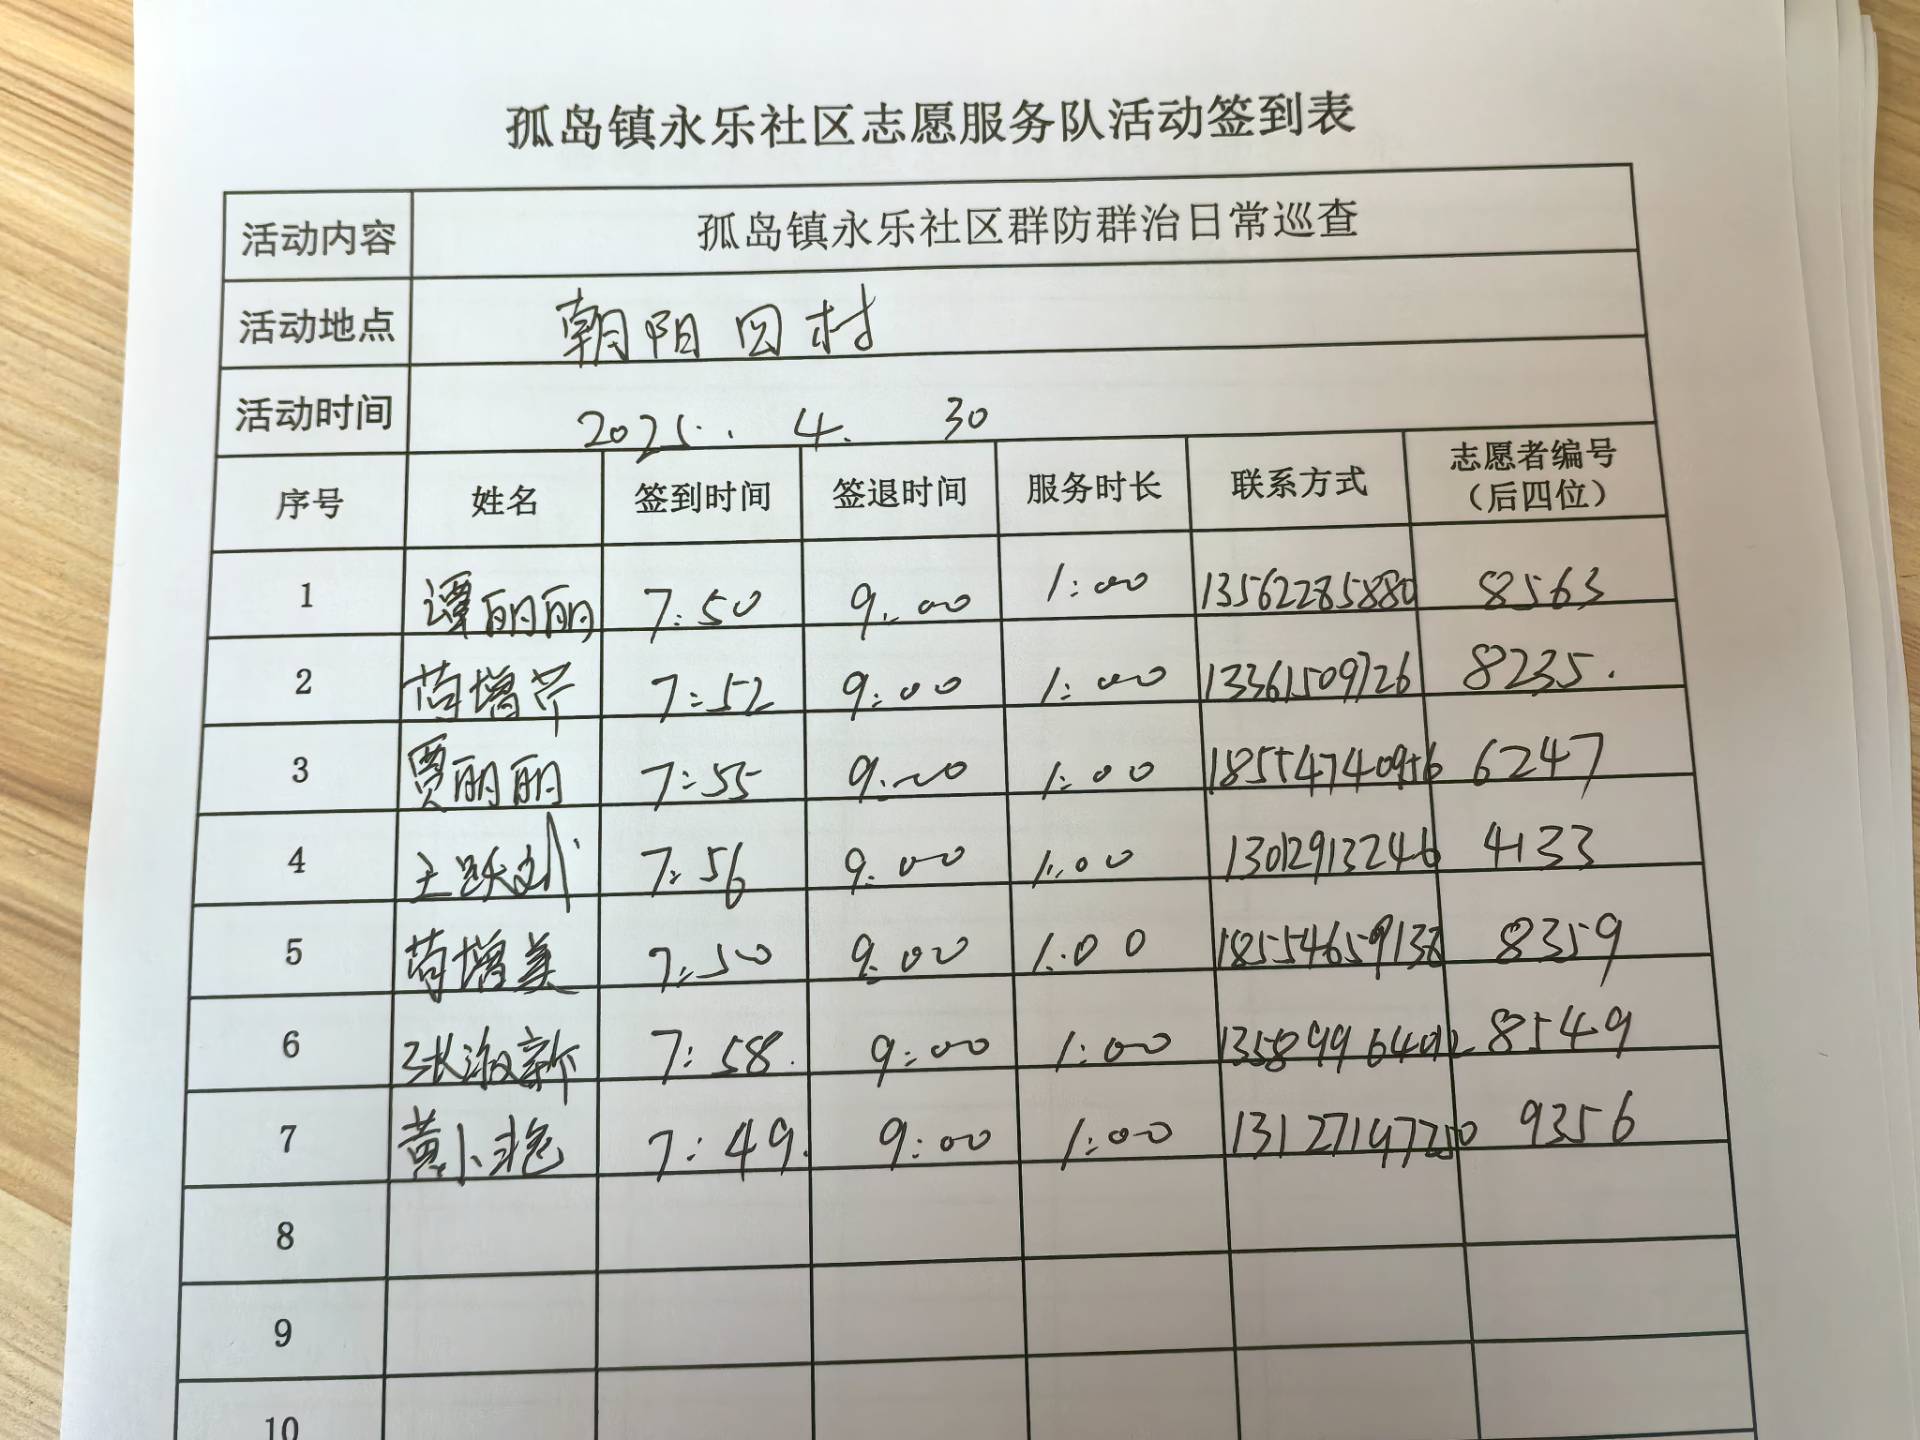 孤岛镇永乐社区志愿服务队活动签到表
活动内容 孤岛镇永乐社区群防群治日常巡查
活动地点 朝阳四村
活动时间 2025. 4. 30
序号 姓名 签到时间 签退时间 服务时长 联系方式 志愿者编号(后四位)
1 谭丽丽 7:50 9:00 1:00 13562285880 8563
2 苟增芹 7:52 9:00 1:00 13361509726 8235.
3 贾丽丽 7:55 9:00 1:00 18554740956 6247
4 7:56 9:00 1:00 13012913246 4133
5 苟增美 7:50 9:00 1:00 18554659138 8359
6 7:58. 9:00 1:00 8549
7 黄小艳 7:49. 9:00 1:00 9356
8
9
10